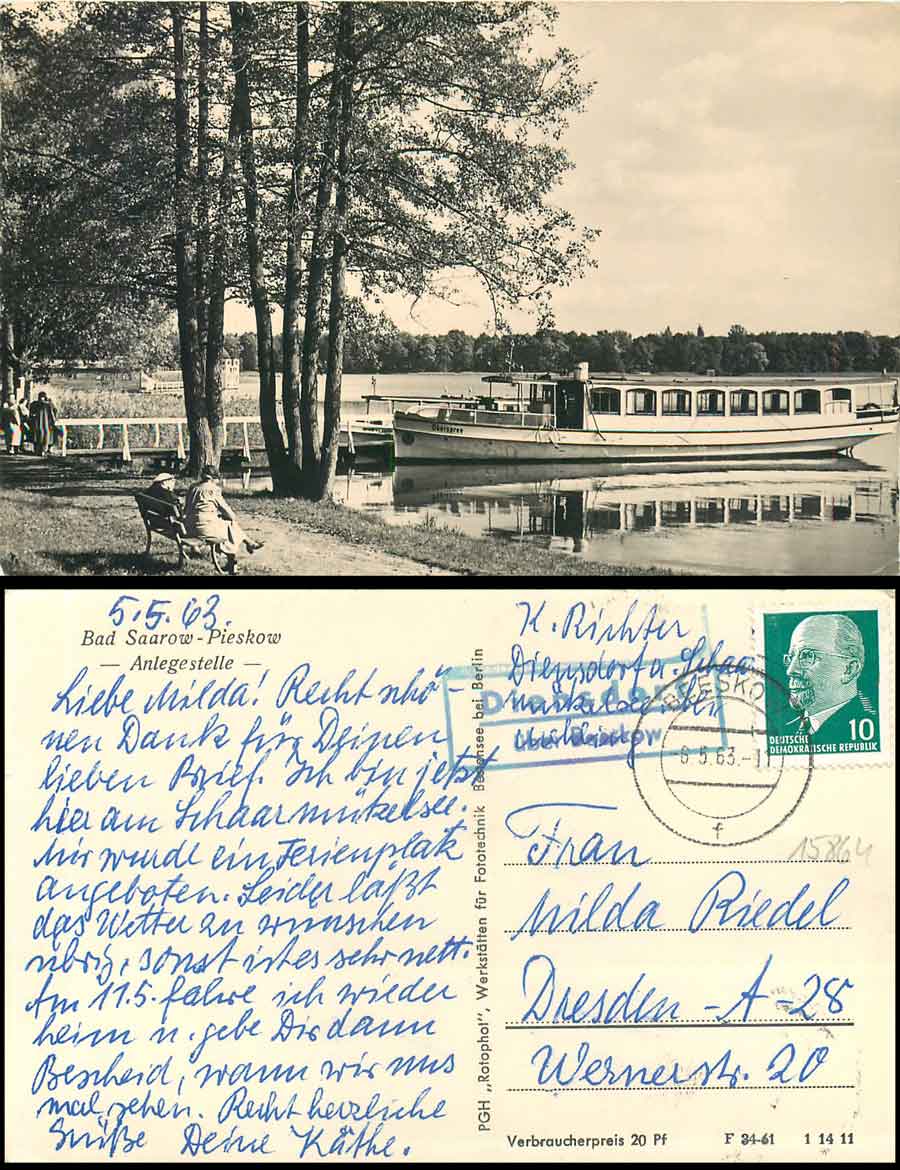 Oberspree
5.5.63.
Bad Saarow-Pieskow
— Anlegestelle —
Liebe Milda! Recht schö-
nen Dank für Deinen
lieben Brief. Ich bin jetzt
hier am Scharmützelsee.
Mir wurde ein Ferienplatz
angeboten. Leider läßt
das Wetter zu wünschen
übrig, sonst ist es sehr nett.
Am 11.5. fahre ich wieder
heim u. gebe Dir dann
Bescheid, wann wir uns
mal sehen. Recht herzliche
Grüße Deine Käthe.
PGH „Rotophot", Werkstätten für Fototechnik Bestensee bei Berlin
K. Richter
Diensdorf a. Schaar
mützelsee bei
Diensdorf
über Beeskow
BEESKOW
-6.5.63.-11
f
10
DEUTSCHE
DEMOKRATISCHE REPUBLIK
15864
Frau
Milda Riedel
Dresden -A-28
Wernerstr. 20
Verbraucherpreis 20 Pf F 34-61 1 14 11